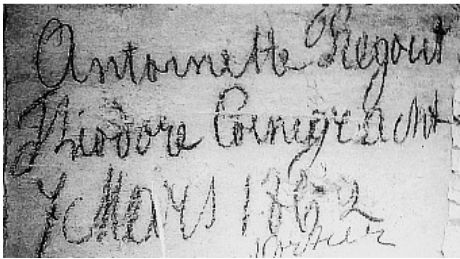 Antoinette Regout
Theodore Cornegracht
7 Mars 1862